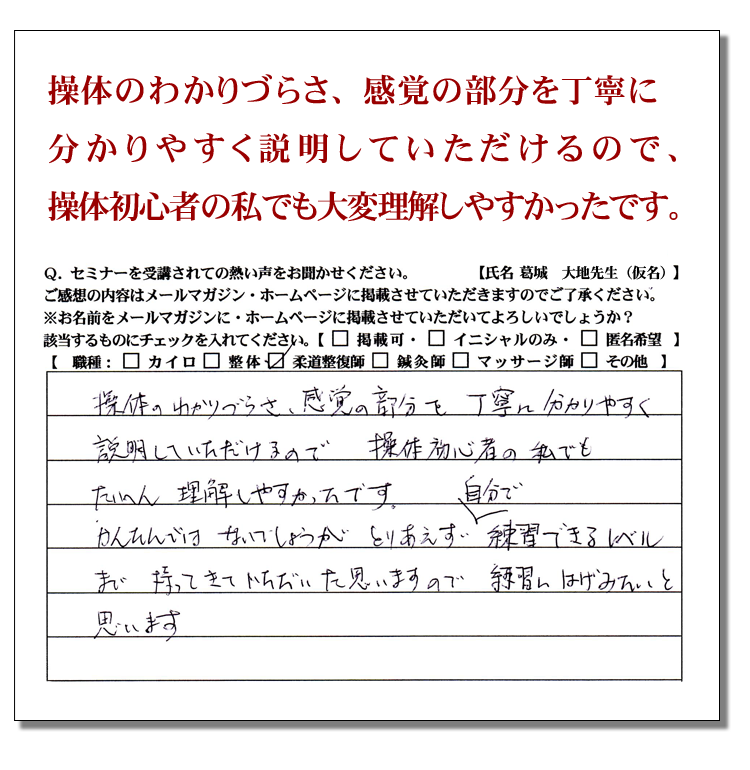 操体のわかりづらさ、感覚の部分を丁寧に
分かりやすく説明していただけるので、
操体初心者の私でも大変理解しやすかったです。
Q．セミナーを受講されての熱い声をお聞かせください。　【氏名 葛城　大地先生（仮名）】
ご感想の内容はメールマガジン・ホームページに掲載させていただきますのでご了承ください。
※お名前をメールマガジンに・ホームページに掲載させていただいてよろしいでしょうか？
該当するものにチェックを入れてください。【 □ 掲載可・ □ イニシャルのみ・ □ 匿名希望 】
【 職種： □ カイロ □ 整体 ☑ 柔道整復師 □ 鍼灸師 □ マッサージ師 □ その他 】
操体のわかりづらさ、感覚の部分を 丁寧に 分かりやすく
説明していただけるので 操体初心者の私でも
たいへん 理解しやすかったです。 自分で
かんたんでは ないでしょうが とりあえず 練習できるレベル
まで 持ってきていただいた思いますので 練習に はげみたいと
思います